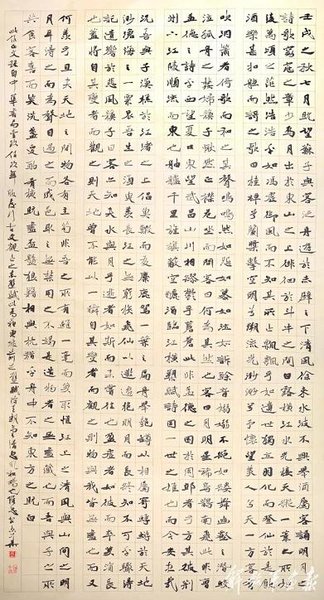 壬戌之秋七月既望蘇子與客泛舟游於赤壁之下清風徐來水波不興舉酒屬客誦明月之
詩歌窈窕之章少焉月出於東山之上徘徊於斗牛之間白露橫江水光接天縱一葦之所如
凌萬頃之茫然浩浩乎如馮虛御風而不知其所止飄飄乎如遺世獨立羽化而登仙於是飲
酒樂甚扣舷而歌之歌曰桂棹兮蘭槳擊空明兮溯流光渺渺兮予懷望美人兮天一方客有
吹洞簫者倚歌而和之其聲嗚嗚然如怨如慕如泣如訴餘音嫋嫋不絕如縷舞幽壑之潛蛟
泣孤舟之嫠婦蘇子愀然正襟危坐而問客曰何為其然也客曰月明星稀烏鵲南飛此非曹
孟德之詩乎西望夏口東望武昌山川相繆鬱乎蒼蒼此非孟德之困於周郎者乎方其破荊
州下江陵順流而東也舳艫千里旌旗蔽空釃酒臨江橫槊賦詩固一世之雄也而今安在哉
況吾與子漁樵於江渚之上侶魚蝦而友麋鹿駕一葉之扁舟舉匏樽以相屬寄蜉蝣於天
地渺滄海之一粟哀吾生之須臾羨長江之無窮挾飛仙以遨遊抱明月而長終知不可乎驟
得託遺響於悲風蘇子曰客亦知夫水與月乎逝者如斯而未嘗往也盈虛者如彼而卒莫消長
也蓋將自其變者而觀之則天地曾不能以一瞬自其不變者而觀之則物與我皆無盡也而又
何羨乎且夫天地之間物各有主苟非吾之所有雖一毫而莫取惟江上之清風與山間之明
月耳得之而為聲目遇之而成色取之無禁用之不竭是造物者之無盡藏也而吾與子之所
共食客喜而笑洗盞更酌肴核既盡杯盤狼籍相與枕藉乎舟中不知東方之既白